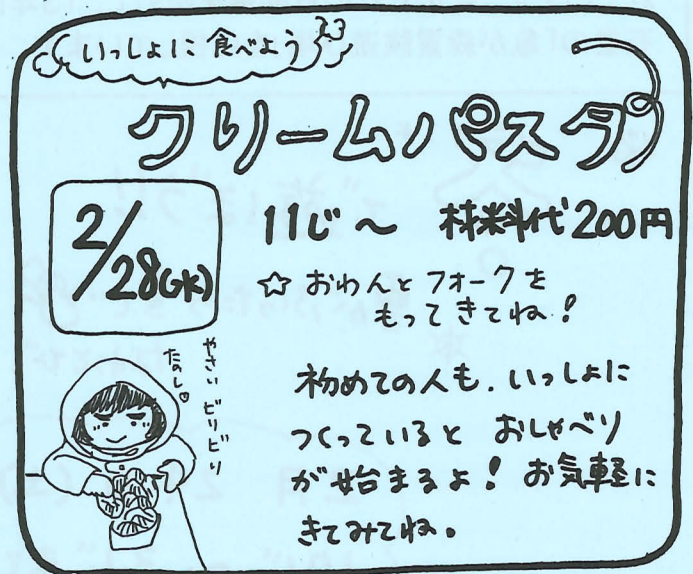 いっしょに食べよう
クリームパスタ
2/28(水)
11じ〜 材料代200円
☆おわんとフォークを
もってきてね!
やさいビリビリ
たのし♡
初めての人も、いっしょに
つくっていると おしゃべり
が始まるよ! お気軽に
きてみてね。